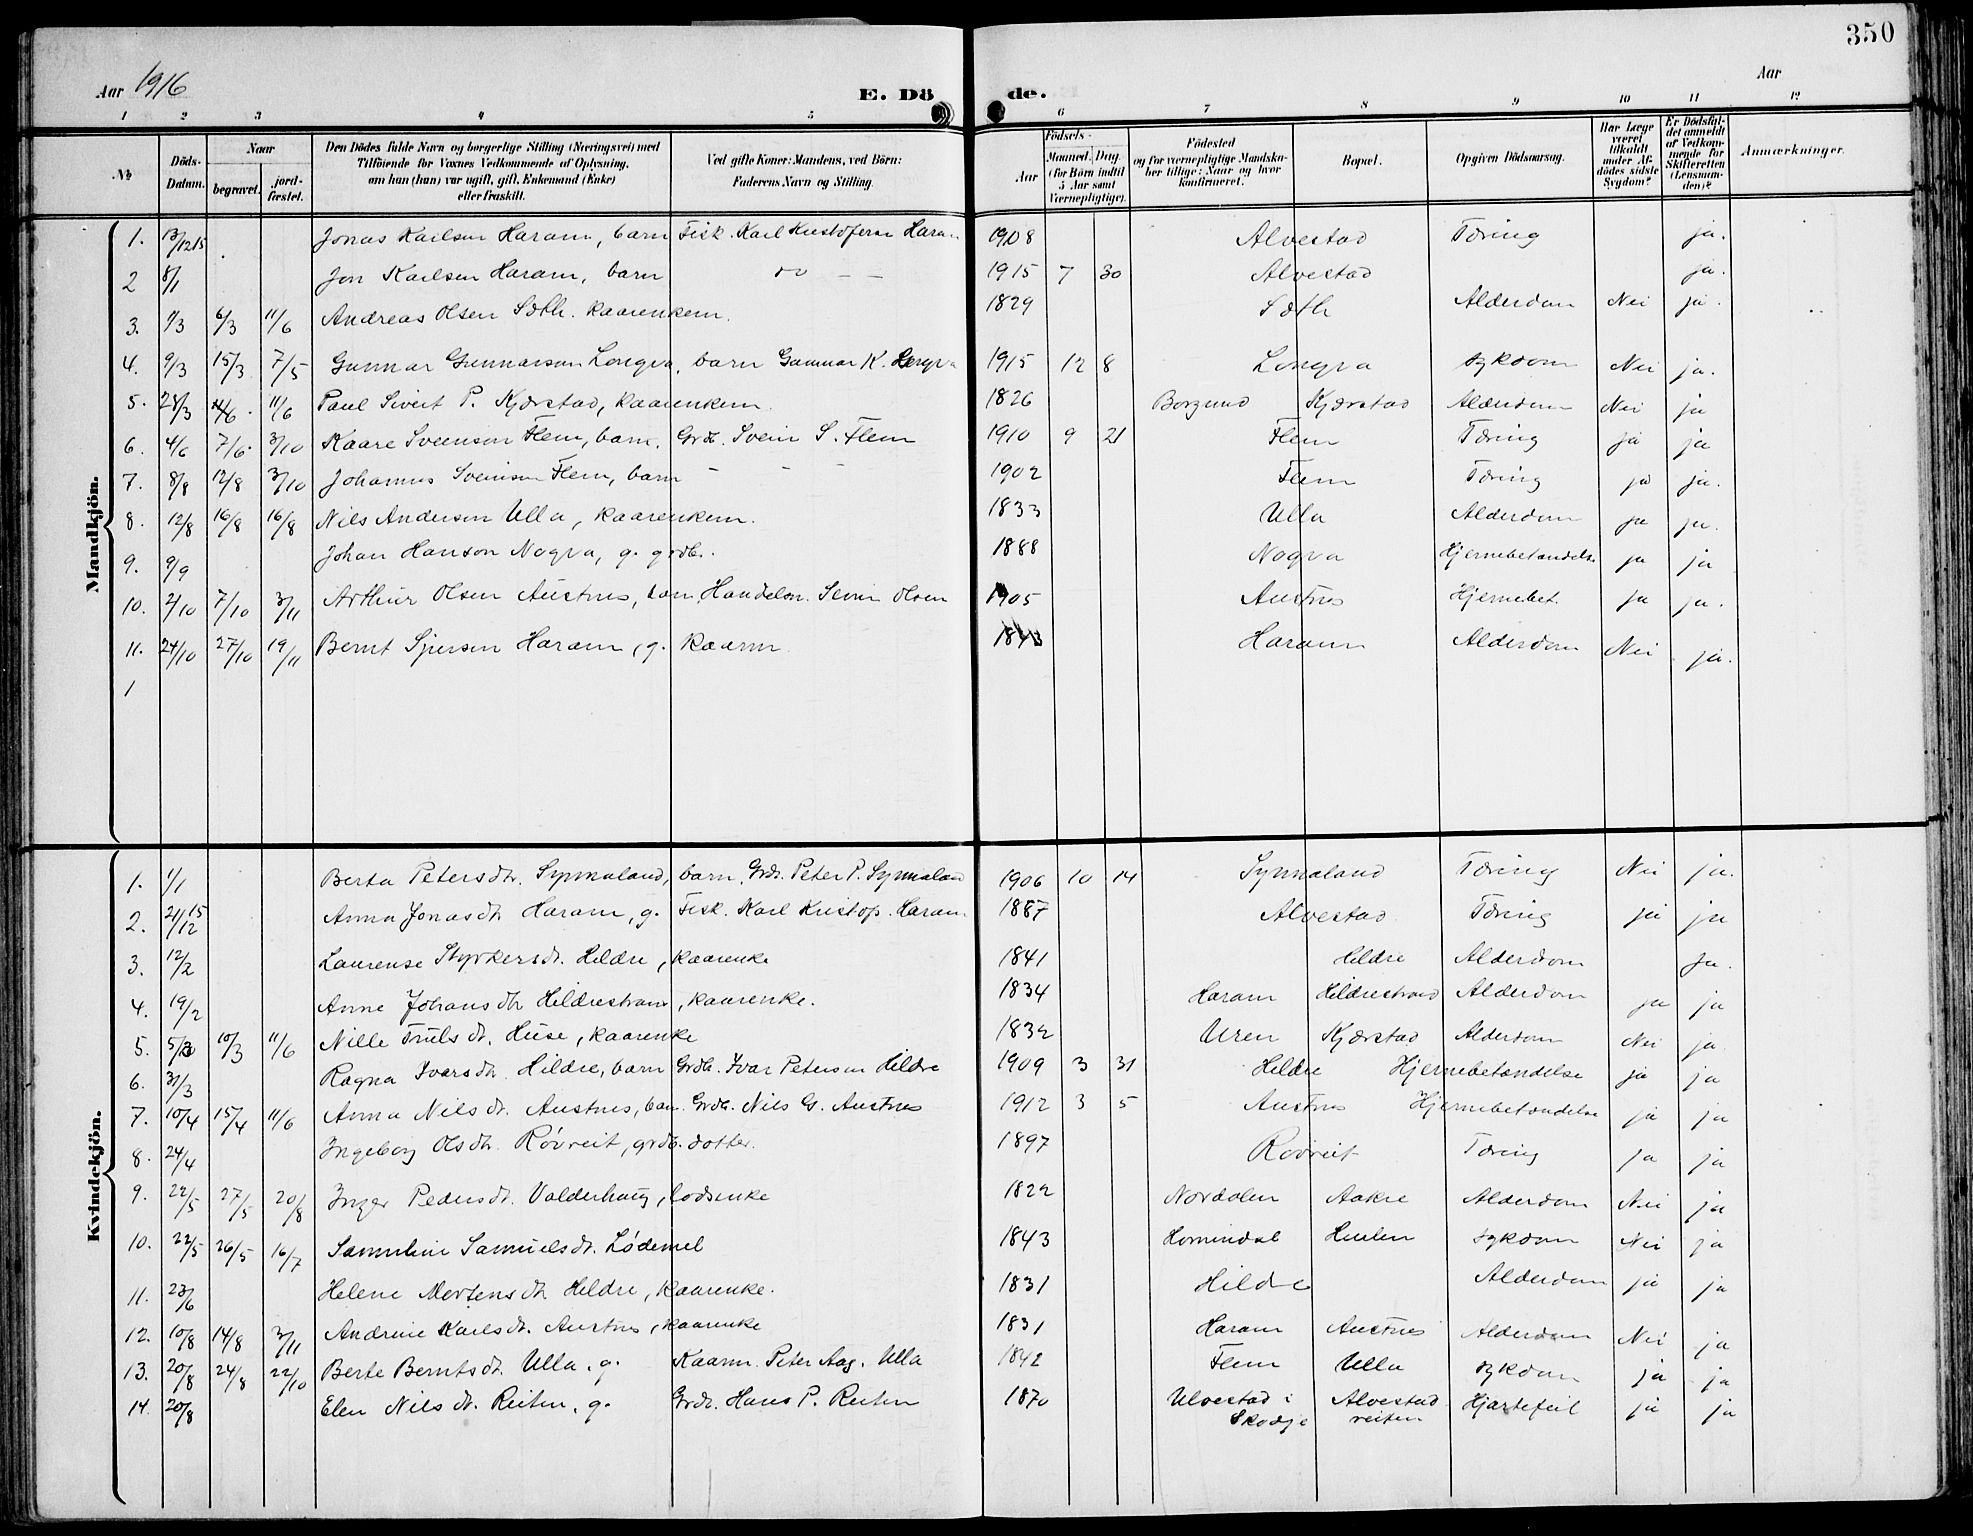 350
Aar 1916 E. Dö de. Aar
1 2 3 4 5 6 7 8 9 10 11 12
No Döds-Datum. Naar begravet. jord-fæstet. Den Dödes fulde Navn og borgerlige Stilling (Næringsvei) med Tilföiende for Voxnes Vedkommende af Oplysning, om han (hun) var ugift, gift, Enkemand (Enke) eller fraskilt. Ved gifte Koner: Mandens, ved Börn: Faderens Navn og Stilling. Födsels- Aar Maaned. Dag. (for Börn indtil 5 Aar samt Værnepligtige). Födested og for værnepligtige Mandskaber tillige: Naar og hvor konfirmeret. Bopæl. Opgiven Dödsaarsag. Har Læge været tilkaldt under Afdödes sidste Sygdom? Er Dödsfaldet anmeldt af Vedkommende for Skifteretten (Lensmanden)? Anmærkninger.
Mandkjön.
1. 13/12 15 Jonas Karlsen Haram, barn Fisk. Karl Kristofersen Haram 1908 Alvestad Tæring ja.
2 8/1 Jon Karlsen Haram, barn 1915 7 30 Alvestad ja.
3. 1/3 6/3 11/6 Andreas Olsen Sæth. kaarenkem. 1829 Sæth Alderdom Nei ja.
4. 9/3 15/3 7/5 Gunnar Gunnarson Longva, barn Gunnar K. Longva 1915 12 8 Longva sykdom Nei ja.
5. 24/3 11/6 Paul Sivert P. Kjærstad, kaarenkem. 1826 Borgund Kjærstad Alderdom Nei ja
6. 4/6 7/6 3/10 Kaare Sveenson Flem, barn. Grdb. Svein S. Flem 1910 9 21 Flem Tæring ja ja
7. 8/8 12/8 3/10 Johannes Sveinson Flem, barn - - - 1902 Flem Tæring ja ja.
8. 12/8 16/8 16/8 Nils Andersen Ulla, kaarenkem. 1833 Ulla Alderdom ja ja.
9. 9/9 Johan Hanson Nogva, g. grdb. 1888 Nogva Hjernebetændelse ja ja
10. 2/10 7/10 3/11 Arthur Olsen Austnes, barn, Handelsm. Olsen 1905 Austnes Hjernebet. ja ja.
11. 24/10 27/10 19/11 Bernt Sjursen Haram, g. kaarm. Haram Alderdom Nei ja.
1
Kvindekjön.
1. 1/1 Berta Petersdtr. Synnaland, barn, Grdb. Peter P. Synnaland 1906 10 14 Synnaland Tæring Nei ja.
2. 21/12 15 Anna Jonasdtr Haram, g. Fisk. Karl Kristof. Haram 1887 Alvestad Tæring ja ja
3. 12/2 Laurense Styrkersdt. Hildre, kaarenke 1841 Hildre Alderdom Ja.
4. 19/2 Anne Johansdtr Hildrestrand, kaarenke. 1834 Haram Hildrestrand Alderdom ja ja
5. 5/3 10/3 11/6 Nille Trulsdt. Huse, kaarenke 1832 Uren Kjærstad Alderdom Nei ja.
6. 31/3 Ragna Ivarsdtr. Hildre, barn Grdb. Ivar Petersen Hildre 1909 3 31 Hildre Hjernebetændelse ja ja
7. 10/4 15/4 11/6 Anna Nilsdt. Austnes, barn Grdb. Nils G. Austnes 1912 3 5 Austnes Hjernebetændelse ja ja
8. 24/4 Ingeborg Olsdtr. Røvreit, grdb. dotter. 1897 Røvreit Tæring ja ja
9. 22/5 27/5 20/8 Inger Pedersdt. Valderhaug, lodsenke 1822 Norddalen Aakre Alderdom Nei ja
10. 22/5 26/5 16/7 Samuline Samuelsdt. Lødemel 1843 Hornindal sykdom Nei ja
11. 23/6 Helene Mortensdtr Hildre, kaarenke. 1831 Hildre Alderdom ja ja
12. 10/8 14/8 3/11 Andrine Karlsdt. Austnes, kaarenke 1831 Haram Austnes Alderdom Nei ja
13. 20/8 24/8 22/10 Berte Berntsdtr. Ulla, g. Kaarm. Peter Aag. Ulla 1842 Flem Ulla sykdom ja ja
14. 20/8 Elen Nilsdt. Reiten, g. Grdb. Hans P. Reiten 1870 Ulvestad i Skodje Alvestad reiten Hjartefeil ja ja